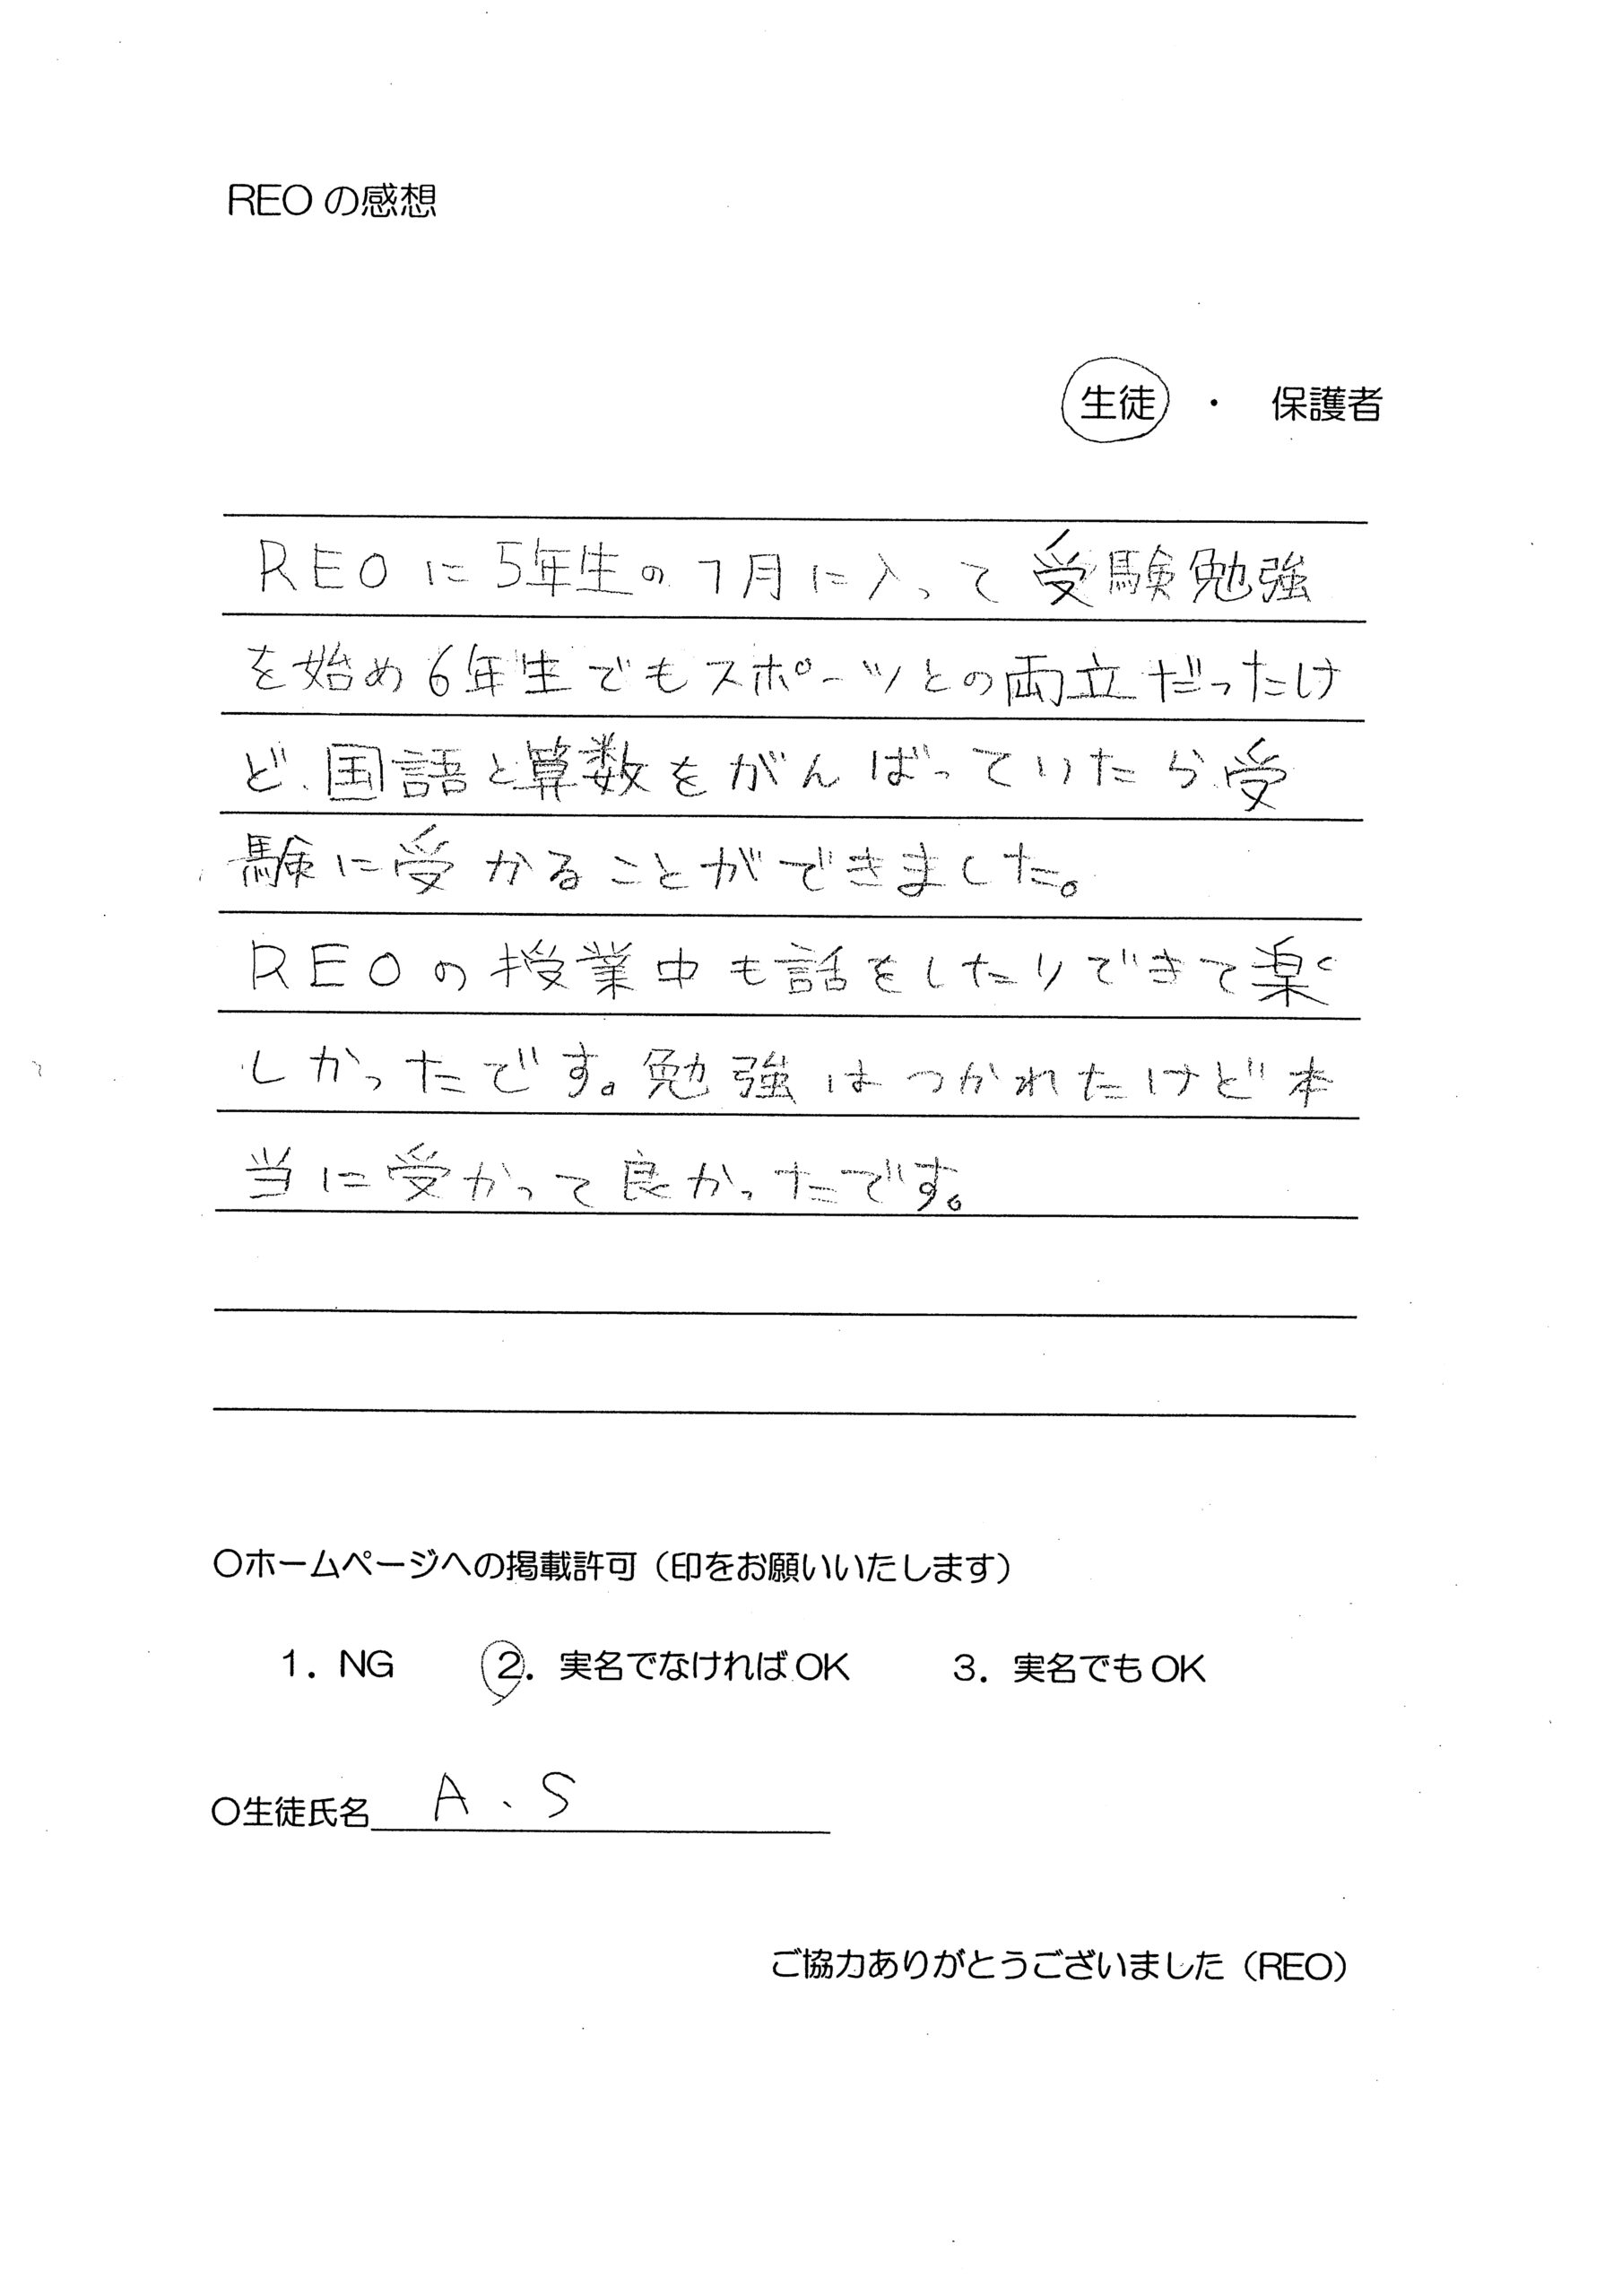 REOの感想
生徒 ・ 保護者
REOに5年生の7月に入って受験勉強
を始め6年生でもスポーツとの両立だったけ
ど、国語と算数をがんばっていたら、受
験に受かることができました。
REOの授業中も話をしたりできて楽
しかったです。勉強はつかれたけど本
当に受かって良かったです。
〇ホームページへの掲載許可（印をお願いいたします）
1．NG 2．実名でなければOK 3．実名でもOK
〇生徒氏名 A、S
ご協力ありがとうございました（REO）